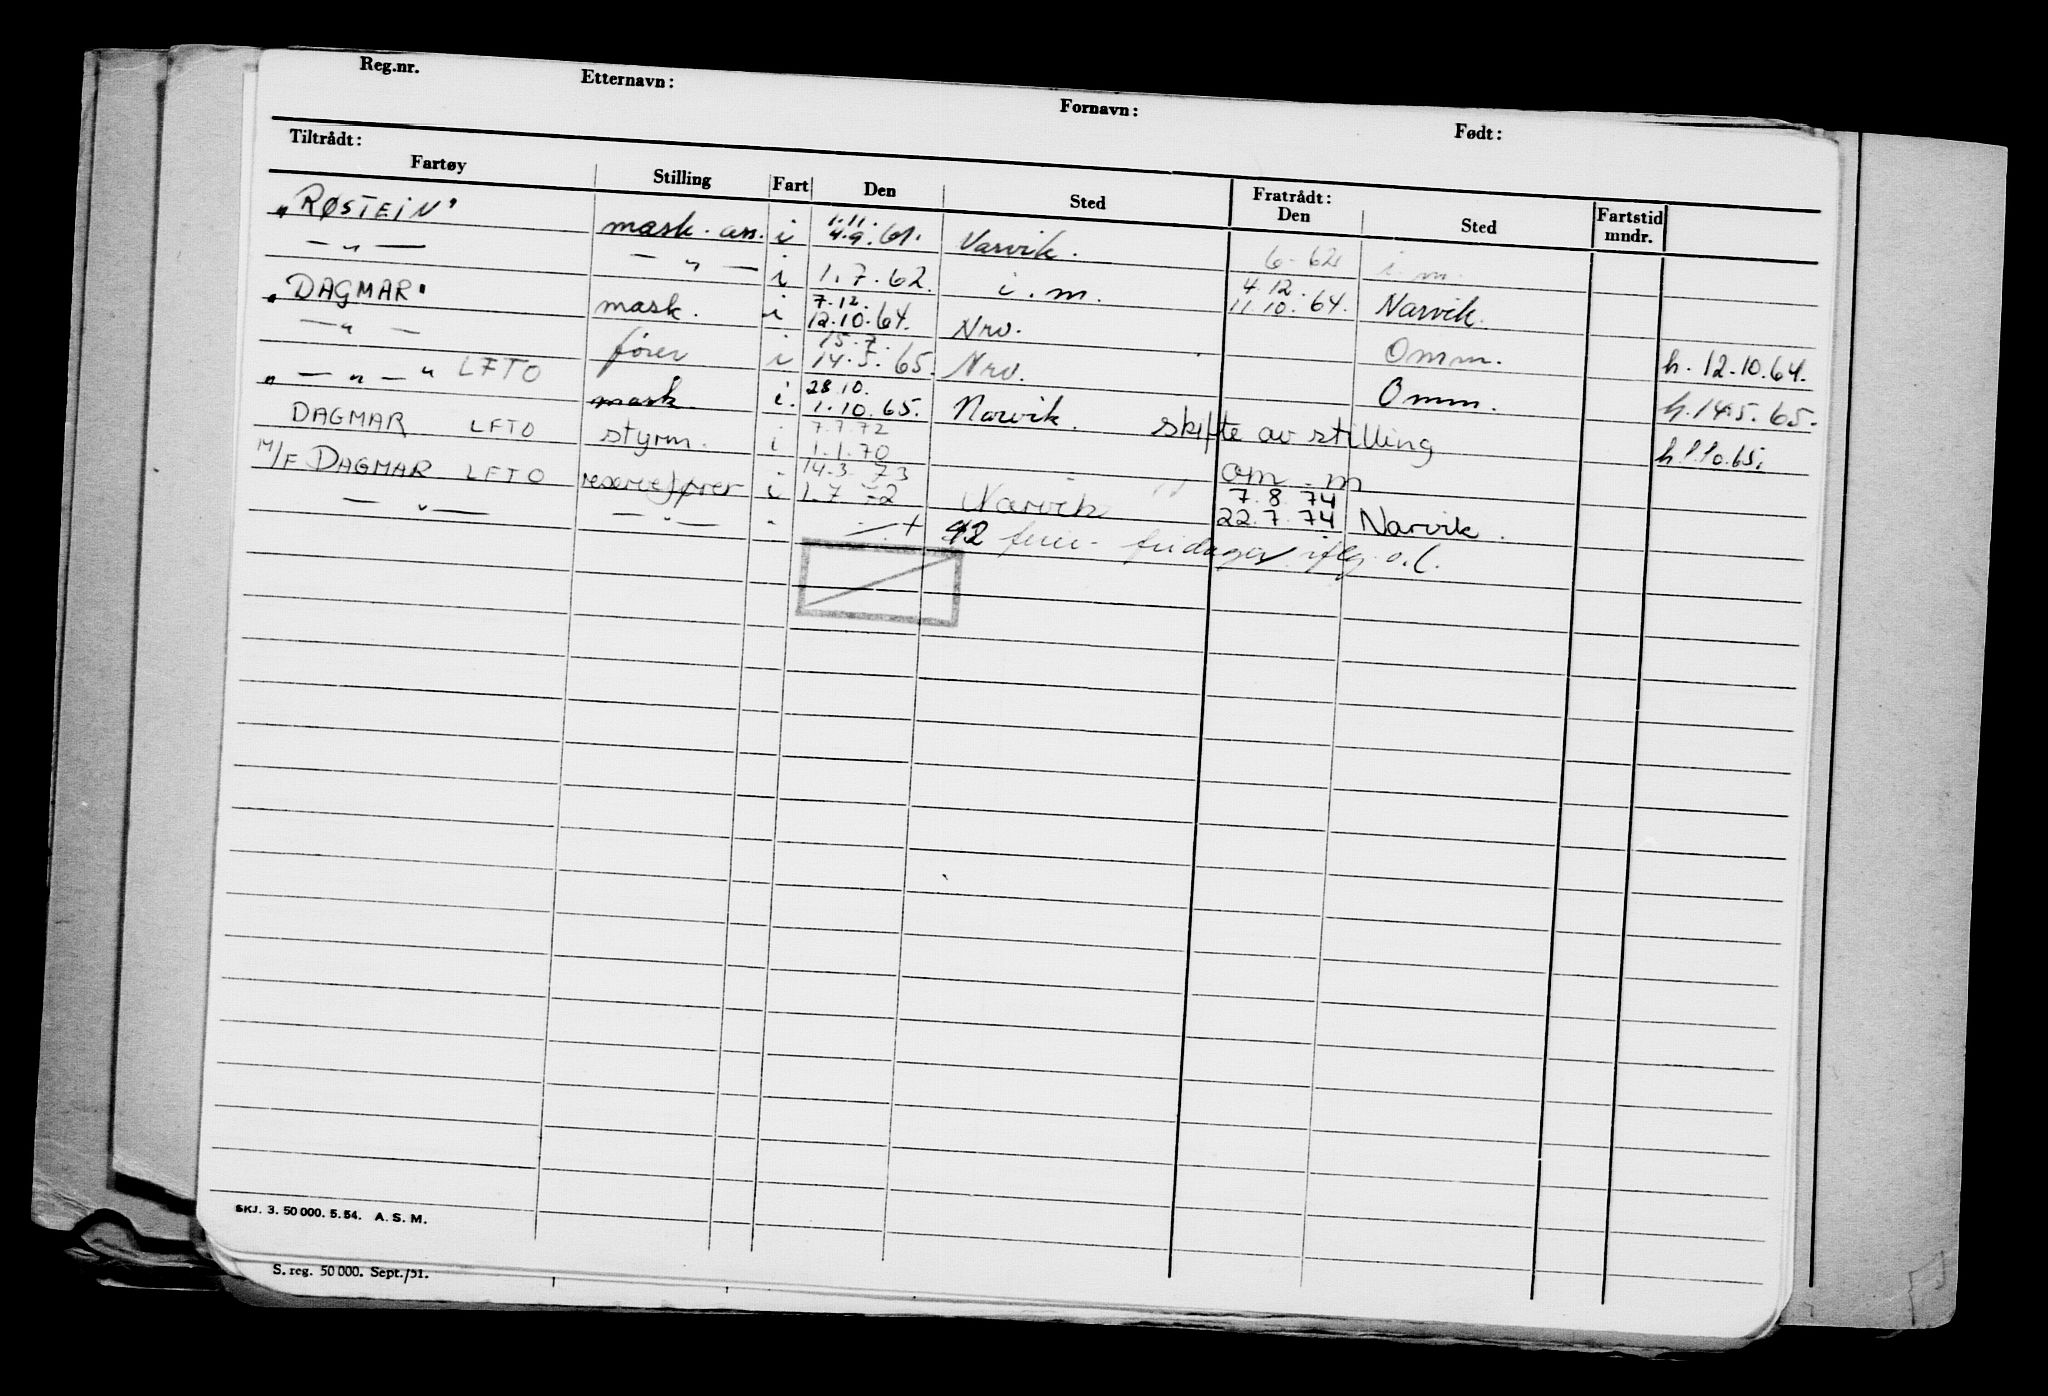 Reg.nr. Etternavn: Fornavn: Født:
Tiltrådt: Fratrådt:
Fartøy Stilling Fart Den Sted Den Sted Fartstid mndr.
1.11.
"RØSTEIN" mask. ass. i 4.9.61. Narvik. 6-62 i.m.
— " — — " — i 1.7.62. i.m. 4.12.
7.12. 11.10.64. Narvik.
"DAGMAR" mask. i 12.10.64. Nrv.
15.7.
— " — fører i 14.5.65. Nrv. Omm. h. 12.10.64.
28.10.
" — " — " LFTO mask. i. 1.10.65. Narvik. Omm. h. 14.5.65.
7.7.72
DAGMAR LFTO styrm. i 1.1.70 skifte av stilling h. 1.10.65.
14.3.73 om.m
M/F DAGMAR LFTO reservefører i 1.7.72 Narvik 7.8.74
— " — — " — " 22.7.74 Narvik.
42 ferie- fridager iflg. o.l.
SKJ. 3. 50 000. 5.54. A. S. M.
S. reg. 50 000. Sept./51.